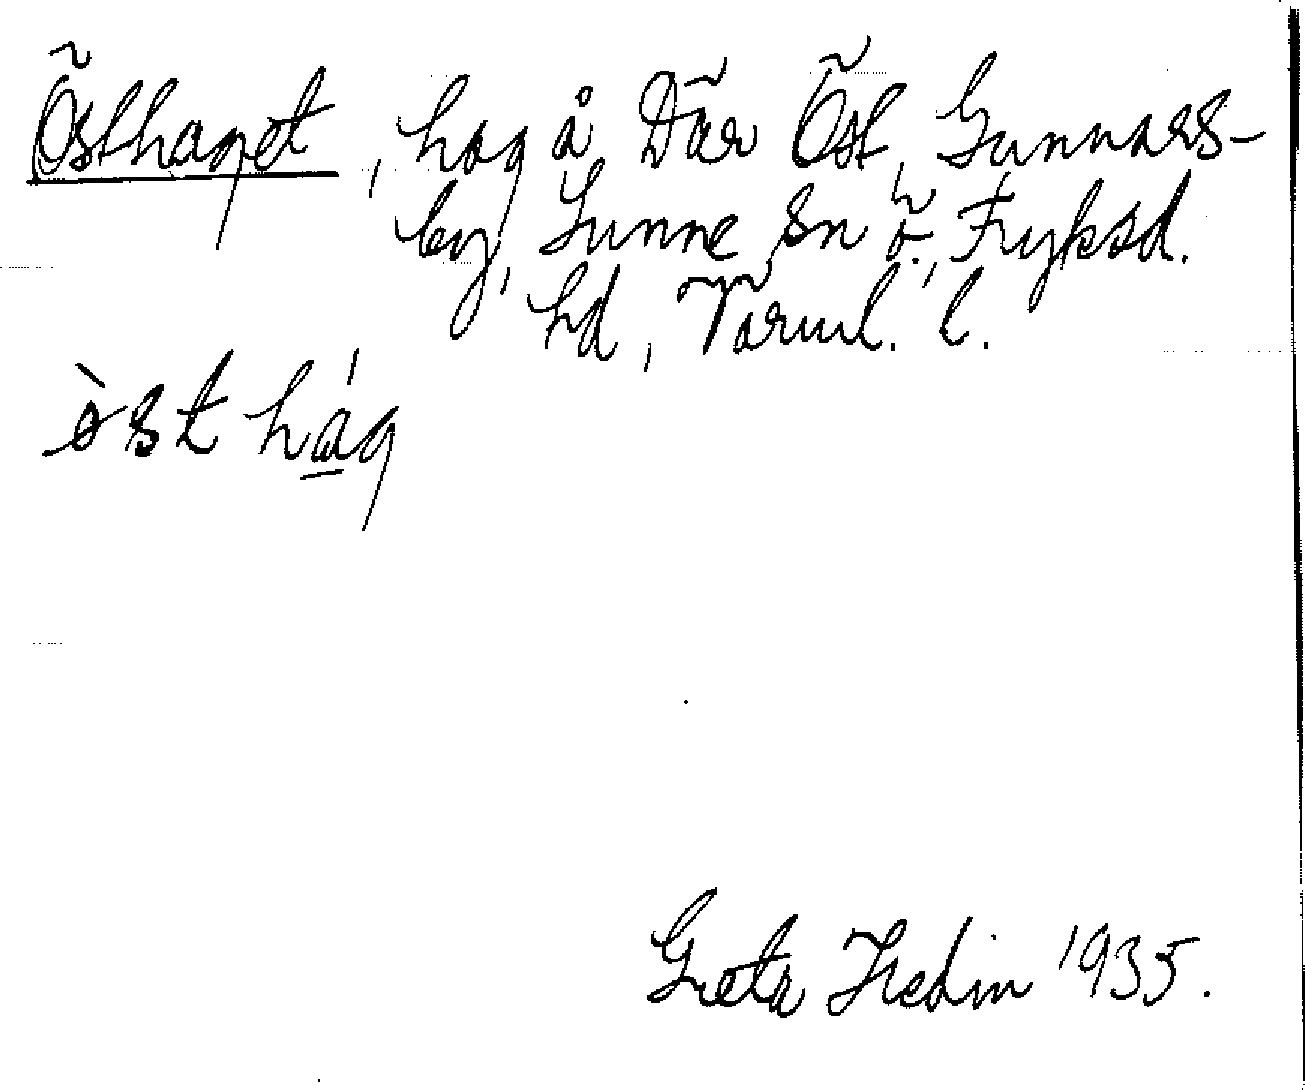 Östhaget, hag å Där Öst, Gunnars-
by, Sunne sn ö. Fryksd.
hd, Värml. l.
òst hág
Greta Hedin 1935.